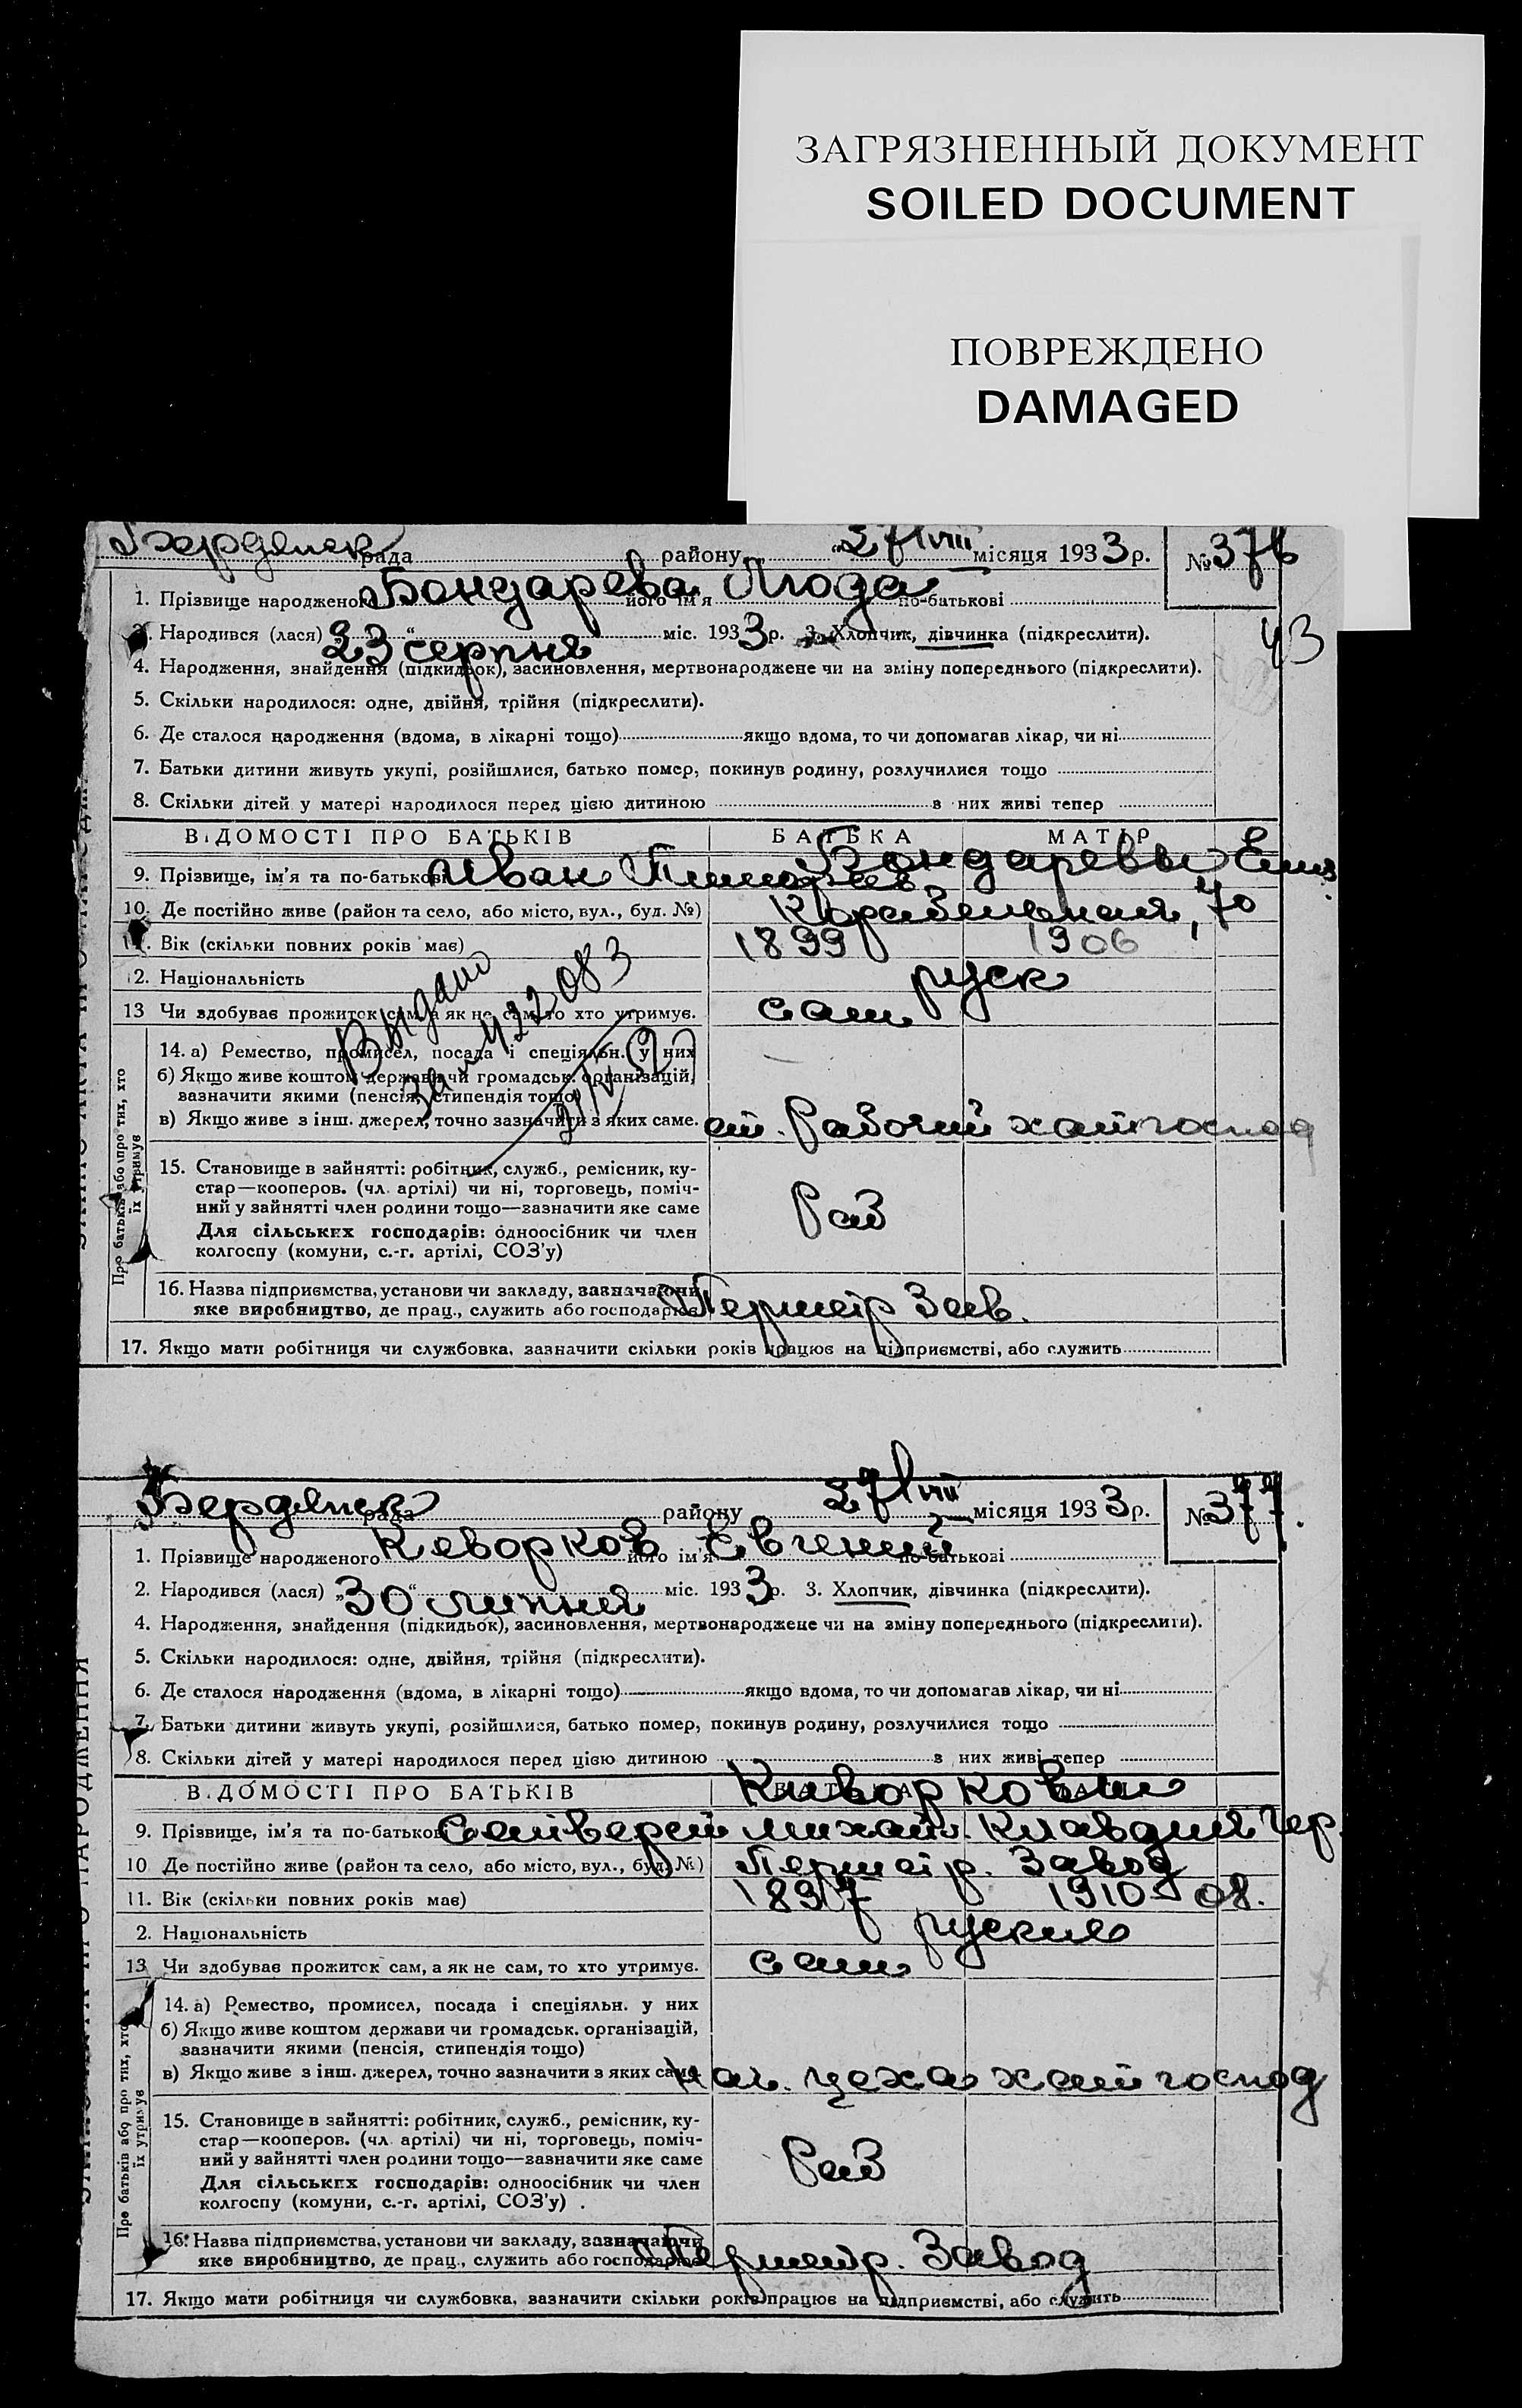 ЗАГРЯЗНЕННЫЙ ДОКУМЕНТ
SOILED DOCUMENT
ПОВРЕЖДЕНО
DAMAGED
Бердянск рада району „27/VIII місяця 1933 р. № 376
1. Прізвище народженого Бондарева його ім'я Люда по-батькові
43
Народився (лася) „23“ серпня міс. 1933 р. 3. Хлопчик, дівчинка (підкреслити).
4. Народження, знайдення (підкидьок), засиновлення, мертвонароджене чи на зміну попереднього (підкреслити).
5. Скільки народилося: одне, двійня, трійня (підкреслити).
6. Де сталося народження (вдома, в лікарні тощо) якщо вдома, то чи допомагав лікар, чи ні
7. Батьки дитини живуть укупі, розійшлися, батько помер, покинув родину, розлучилися тощо
8. Скільки дітей у матері народилося перед цією дитиною з них живі тепер
ВІДОМОСТІ ПРО БАТЬКІВ БАТЬКА МАТІР
Бондаревы
9. Прізвище, ім'я та по-батькові Иван
10. Де постійно живе (район та село, або місто, вул., буд. №) 70
11. Вік (скільки повних років має) 1899 1906
12. Національність руск
13 Чи здобуває прожиток сам, а як не сам, то хто утримує. сам
Выдано
за № 422083
21/IV 52
Про батьків або про тих, хто їх утримує
14. а) Ремество, промисел, посада і спеціяльн. у них
б) Якщо живе коштом держави чи громадськ. організацій,
зазначити якими (пенсія, стипендія тощо)
в) Якщо живе з інш. джерел, точно зазначити з яких саме. Рабочий хатн господ
15. Становище в зайнятті: робітник, служб., ремісник, ку-
стар—кооперов. (чл. артілі) чи ні, торговець, поміч-
ний у зайнятті член родини тощо—зазначити яке саме
Раб
Для сільських господарів: одноосібник чи член
колгоспу (комуни, с.-г. артілі, СОЗ'у)
16. Назва підприємства, установи чи закладу, зазначаючи
яке виробництво, де прац., служить або господарює Першотр Зав.
17. Якщо мати робітниця чи службовка, зазначити скільки років працює на підприємстві, або служить
Бердянск рада району 27/VIII місяця 1933 р. № 377.
1. Прізвище народженого Кеворков його ім'я Євгений по-батькові
2. Народився (лася) „30“ липня міс. 1933 р. 3. Хлопчик, дівчинка (підкреслити).
4. Народження, знайдення (підкидьок), засиновлення, мертвонароджене чи на зміну попереднього (підкреслити).
5. Скільки народилося: одне, двійня, трійня (підкреслити).
6. Де сталося народження (вдома, в лікарні тощо) якщо вдома, то чи допомагав лікар, чи ні
7. Батьки дитини живуть укупі, розійшлися, батько помер, покинув родину, розлучилися тощо
8. Скільки дітей у матері народилося перед цією дитиною з них живі тепер
ВІДОМОСТІ ПРО БАТЬКІВ
9. Прізвище, ім'я та по-батькові Михайл. Клавдия Гер.
10 Де постійно живе (район та село, або місто, вул., буд. №) Першотр. Завод
11. Вік (скільки повних років має) 1897 1910 08.
2. Національність руские
13 Чи здобуває прожиток сам, а як не сам, то хто утримує. сам
Про батьків або про тих, хто їх утримує
14. а) Ремество, промисел, посада і спеціяльн. у них
б) Якщо живе коштом держави чи громадськ. організацій,
зазначити якими (пенсія, стипендія тощо)
в) Якщо живе з інш. джерел, точно зазначити з яких саме. нач. цеха хатн господ
15. Становище в зайнятті: робітник, служб., ремісник, ку-
стар—кооперов. (чл. артілі) чи ні, торговець, поміч-
ний у зайнятті член родини тощо—зазначити яке саме
Раб
Для сільських господарів: одноосібник чи член
колгоспу (комуни, с.-г. артілі, СОЗ'у)
16. Назва підприємства, установи чи закладу, зазначаючи
яке виробництво, де прац., служить або господарює Першотр. Завод
17. Якщо мати робітниця чи службовка, зазначити скільки років працює на підприємстві, або служить